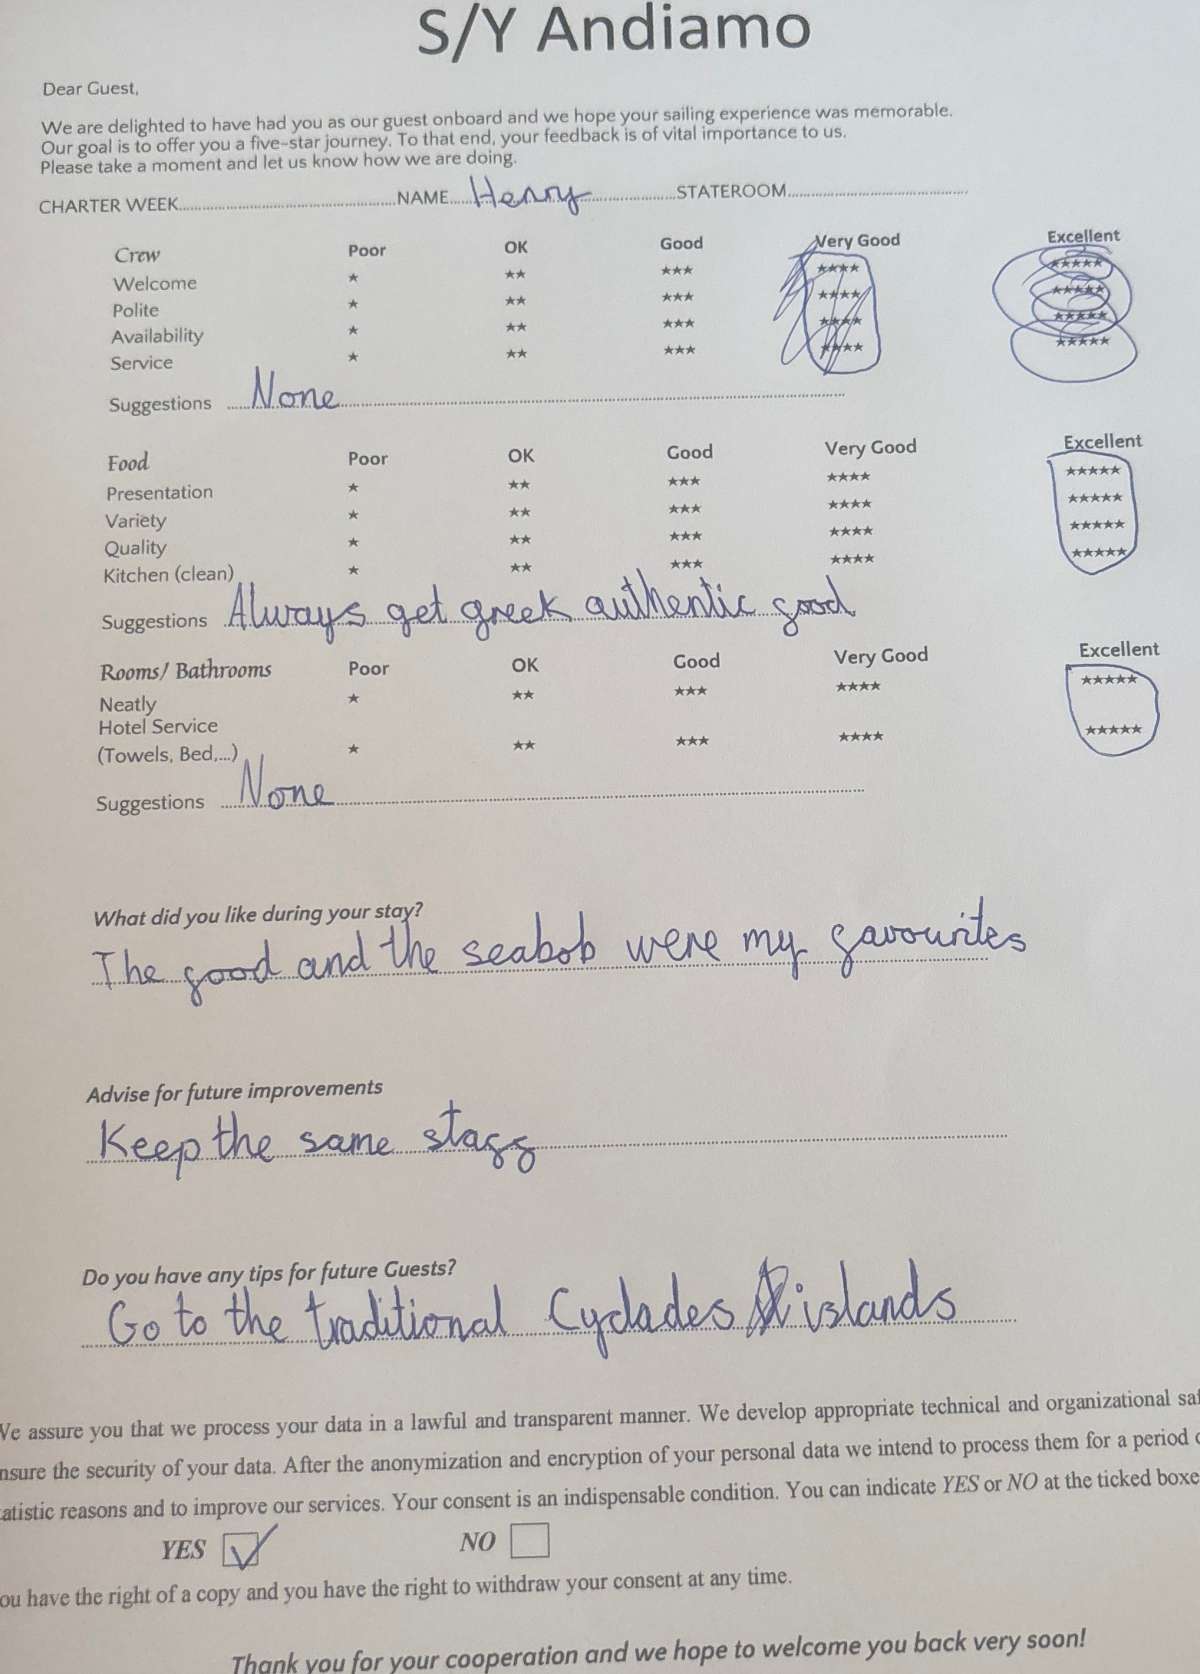 S/Y Andiamo
Dear Guest,
We are delighted to have had you as our guest onboard and we hope your sailing experience was memorable.
Our goal is to offer you a five-star journey. To that end, your feedback is of vital importance to us.
Please take a moment and let us know how we are doing.
CHARTER WEEK NAME Henry STATEROOM
Crew Poor OK Good Very Good Excellent
Welcome ★ ★★ ★★★ ★★★★ ★★★★★
Polite ★ ★★ ★★★ ★★★★ ★★★★★
Availability ★ ★★ ★★★ ★★★★ ★★★★★
Service ★ ★★ ★★★ ★★★★ ★★★★★
Suggestions None
Food Poor OK Good Very Good Excellent
Presentation ★ ★★ ★★★ ★★★★ ★★★★★
Variety ★ ★★ ★★★ ★★★★ ★★★★★
Quality ★ ★★ ★★★ ★★★★ ★★★★★
Kitchen (clean) ★ ★★ ★★★ ★★★★ ★★★★★
Suggestions Always get greek authentic food
Rooms/ Bathrooms Poor OK Good Very Good Excellent
Neatly ★ ★★ ★★★ ★★★★ ★★★★★
Hotel Service
(Towels, Bed,...) ★ ★★ ★★★ ★★★★ ★★★★★
Suggestions None
What did you like during your stay?
The food and the seabob were my favourites
Advise for future improvements
Keep the same staff
Do you have any tips for future Guests?
Go to the traditional Cyclades islands
We assure you that we process your data in a lawful and transparent manner. We develop appropriate technical and organizational saf
nsure the security of your data. After the anonymization and encryption of your personal data we intend to process them for a period o
atistic reasons and to improve our services. Your consent is an indispensable condition. You can indicate YES or NO at the ticked boxe
YES NO
ou have the right of a copy and you have the right to withdraw your consent at any time.
Thank you for your cooperation and we hope to welcome you back very soon!